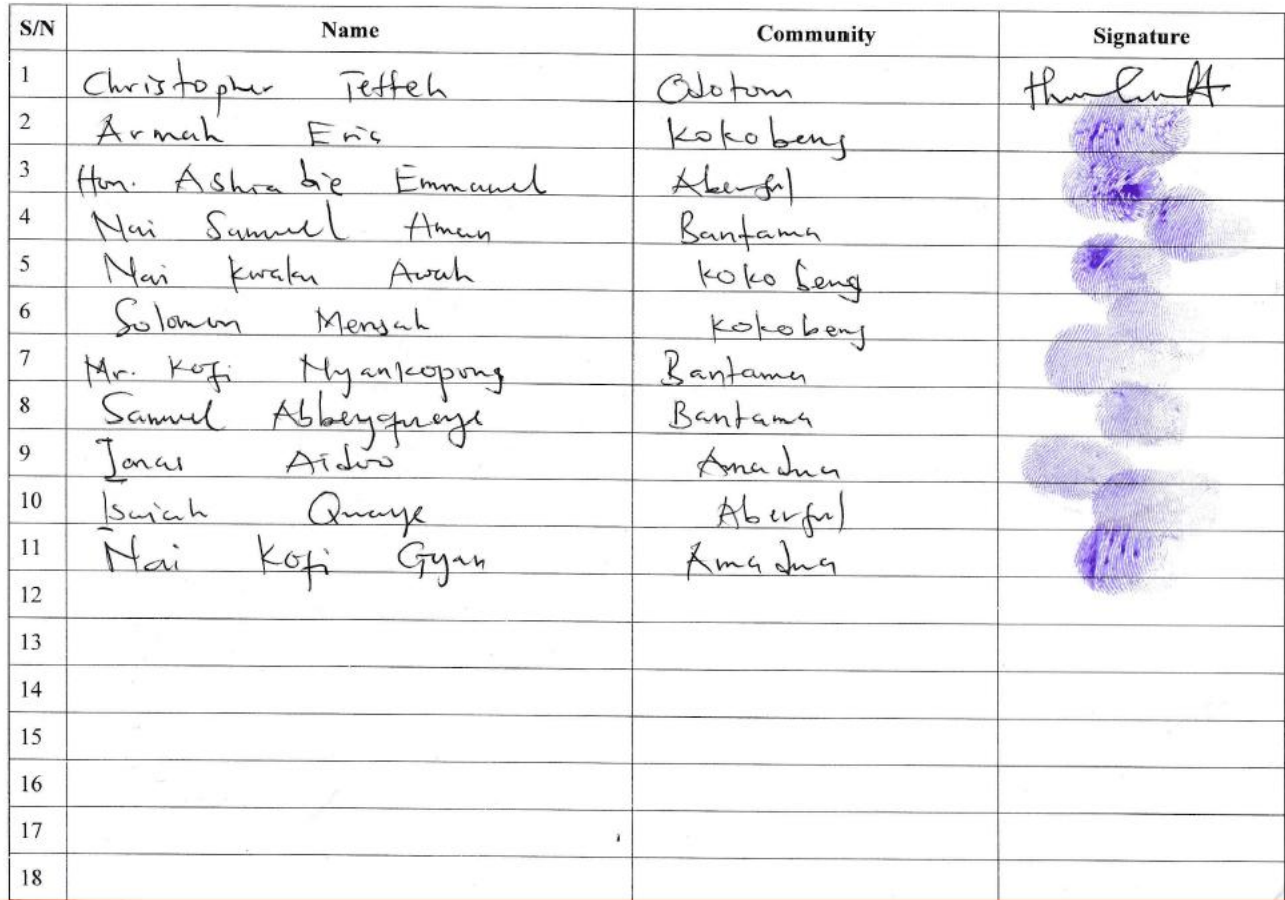 S/N Name Community Signature
1 Christopher Tetteh Odotom
2 Armah Eris Kokobeng
3 Hon. Ashiabie Emmanuel Aberful
4 Nai Samuel Aman Bantama
5 Nai Kwaku Awah Kokobeng
6 Solomon Mensah Kokobeng
7 Mr. Kofi Nyankopong Bantama
8 Samuel Abbeyquaye Bantama
9 Jonas Aidoo Amadua
10 Isaiah Quaye Aberful
11 Nai Kofi Gyan Amadua
12
13
14
15
16
17
18